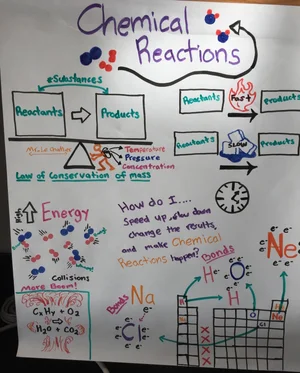 Chemical
Reactions
#Substances
Reactants
Products
Reactants
Fast
Products
Reactants
Slow
Products
Make Change
Temperature
Pressure
Concentration
Law of Conservation of mass
High
Energy
Collisions
More Boom!
CxHy + O2
H2O + CO2
How do I....
Speed up, slow down
change the results,
and make Chemical
Reactions happen?
Bonds
H
O
H
e-
e-
e-
e-
Ne
e-
e-
e-
e-
e-
e-
e-
e-
Bonds
Na
e-
Cl
e-
e-
e-
e-
e-
e-
e-
H
O
Ne
Na
Cl
X
X
X
X